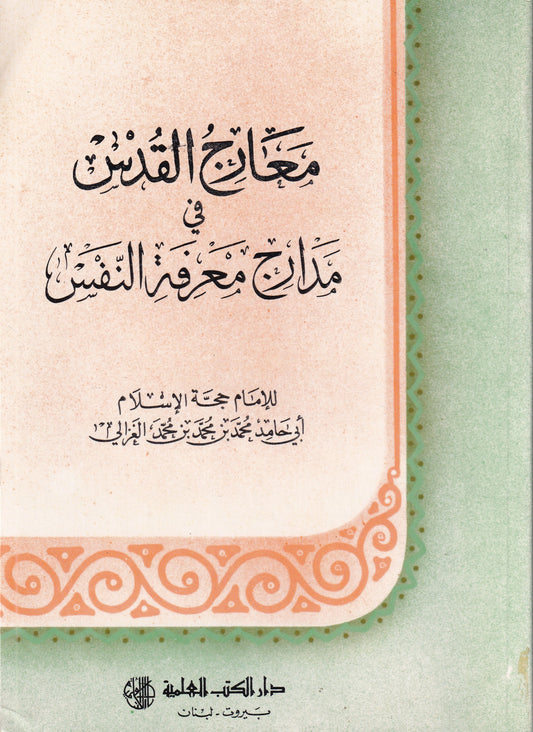 مَعَارِجُ القُدْسِ
في
مَدَارِجِ مَعْرِفَةِ النَّفْسِ
للإمَام حجَّة الإسْلَام
أبي حَامِد مُحمَّد بن مُحمَّد بن مُحمَّد الغزالي
دار الكتب العلمية
بيروت - لبنان